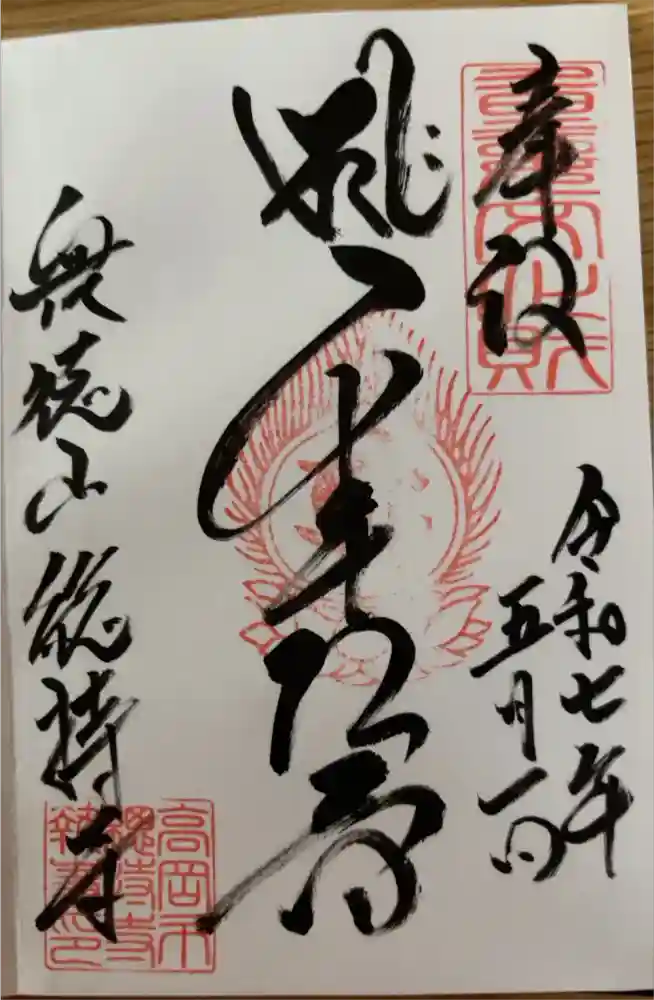 奉拝
令和七年
五月一日
千手観音
衆徳山 総持寺
高岡市
總持寺